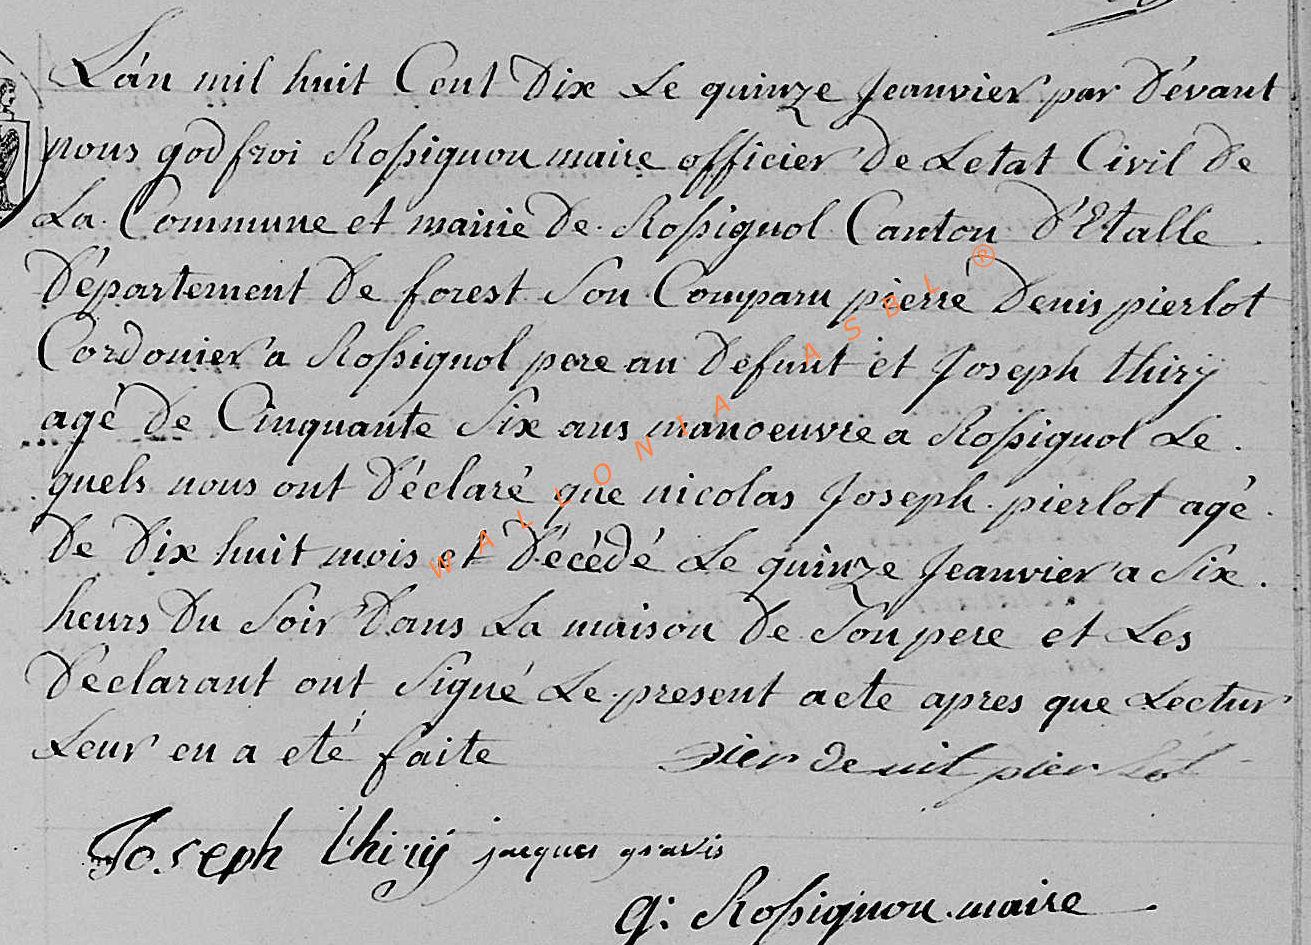 L'an mil huit Cent Dix Le quinze Jeanvier par Dévant
nous godfroi Rossignon maire officier De Letat Civil De
La Commune et mairie De Rossignol Canton D'Etalle
Département De forest Son Comparu pierre Denis pierlot
Cordonier a Rossignol pere au Defunt et Joseph thirÿ
agé De Cinquante Six ans manoeuvre a Rossignol Le
quels nous ont Déclaré que nicolas Joseph pierlot agé
De Dix huit mois et Décédé Le quinze Jeanvier a Six
heurs Du Soir Dans La maison De Son pere et Les
Déclarant ont Signé Le present acte apres que Lectur
Leur en a eté faite
pier de nil pier lot
Joseph thirÿ jacques gravis
g: Rossignon maire
WALLONIA ASBL ®